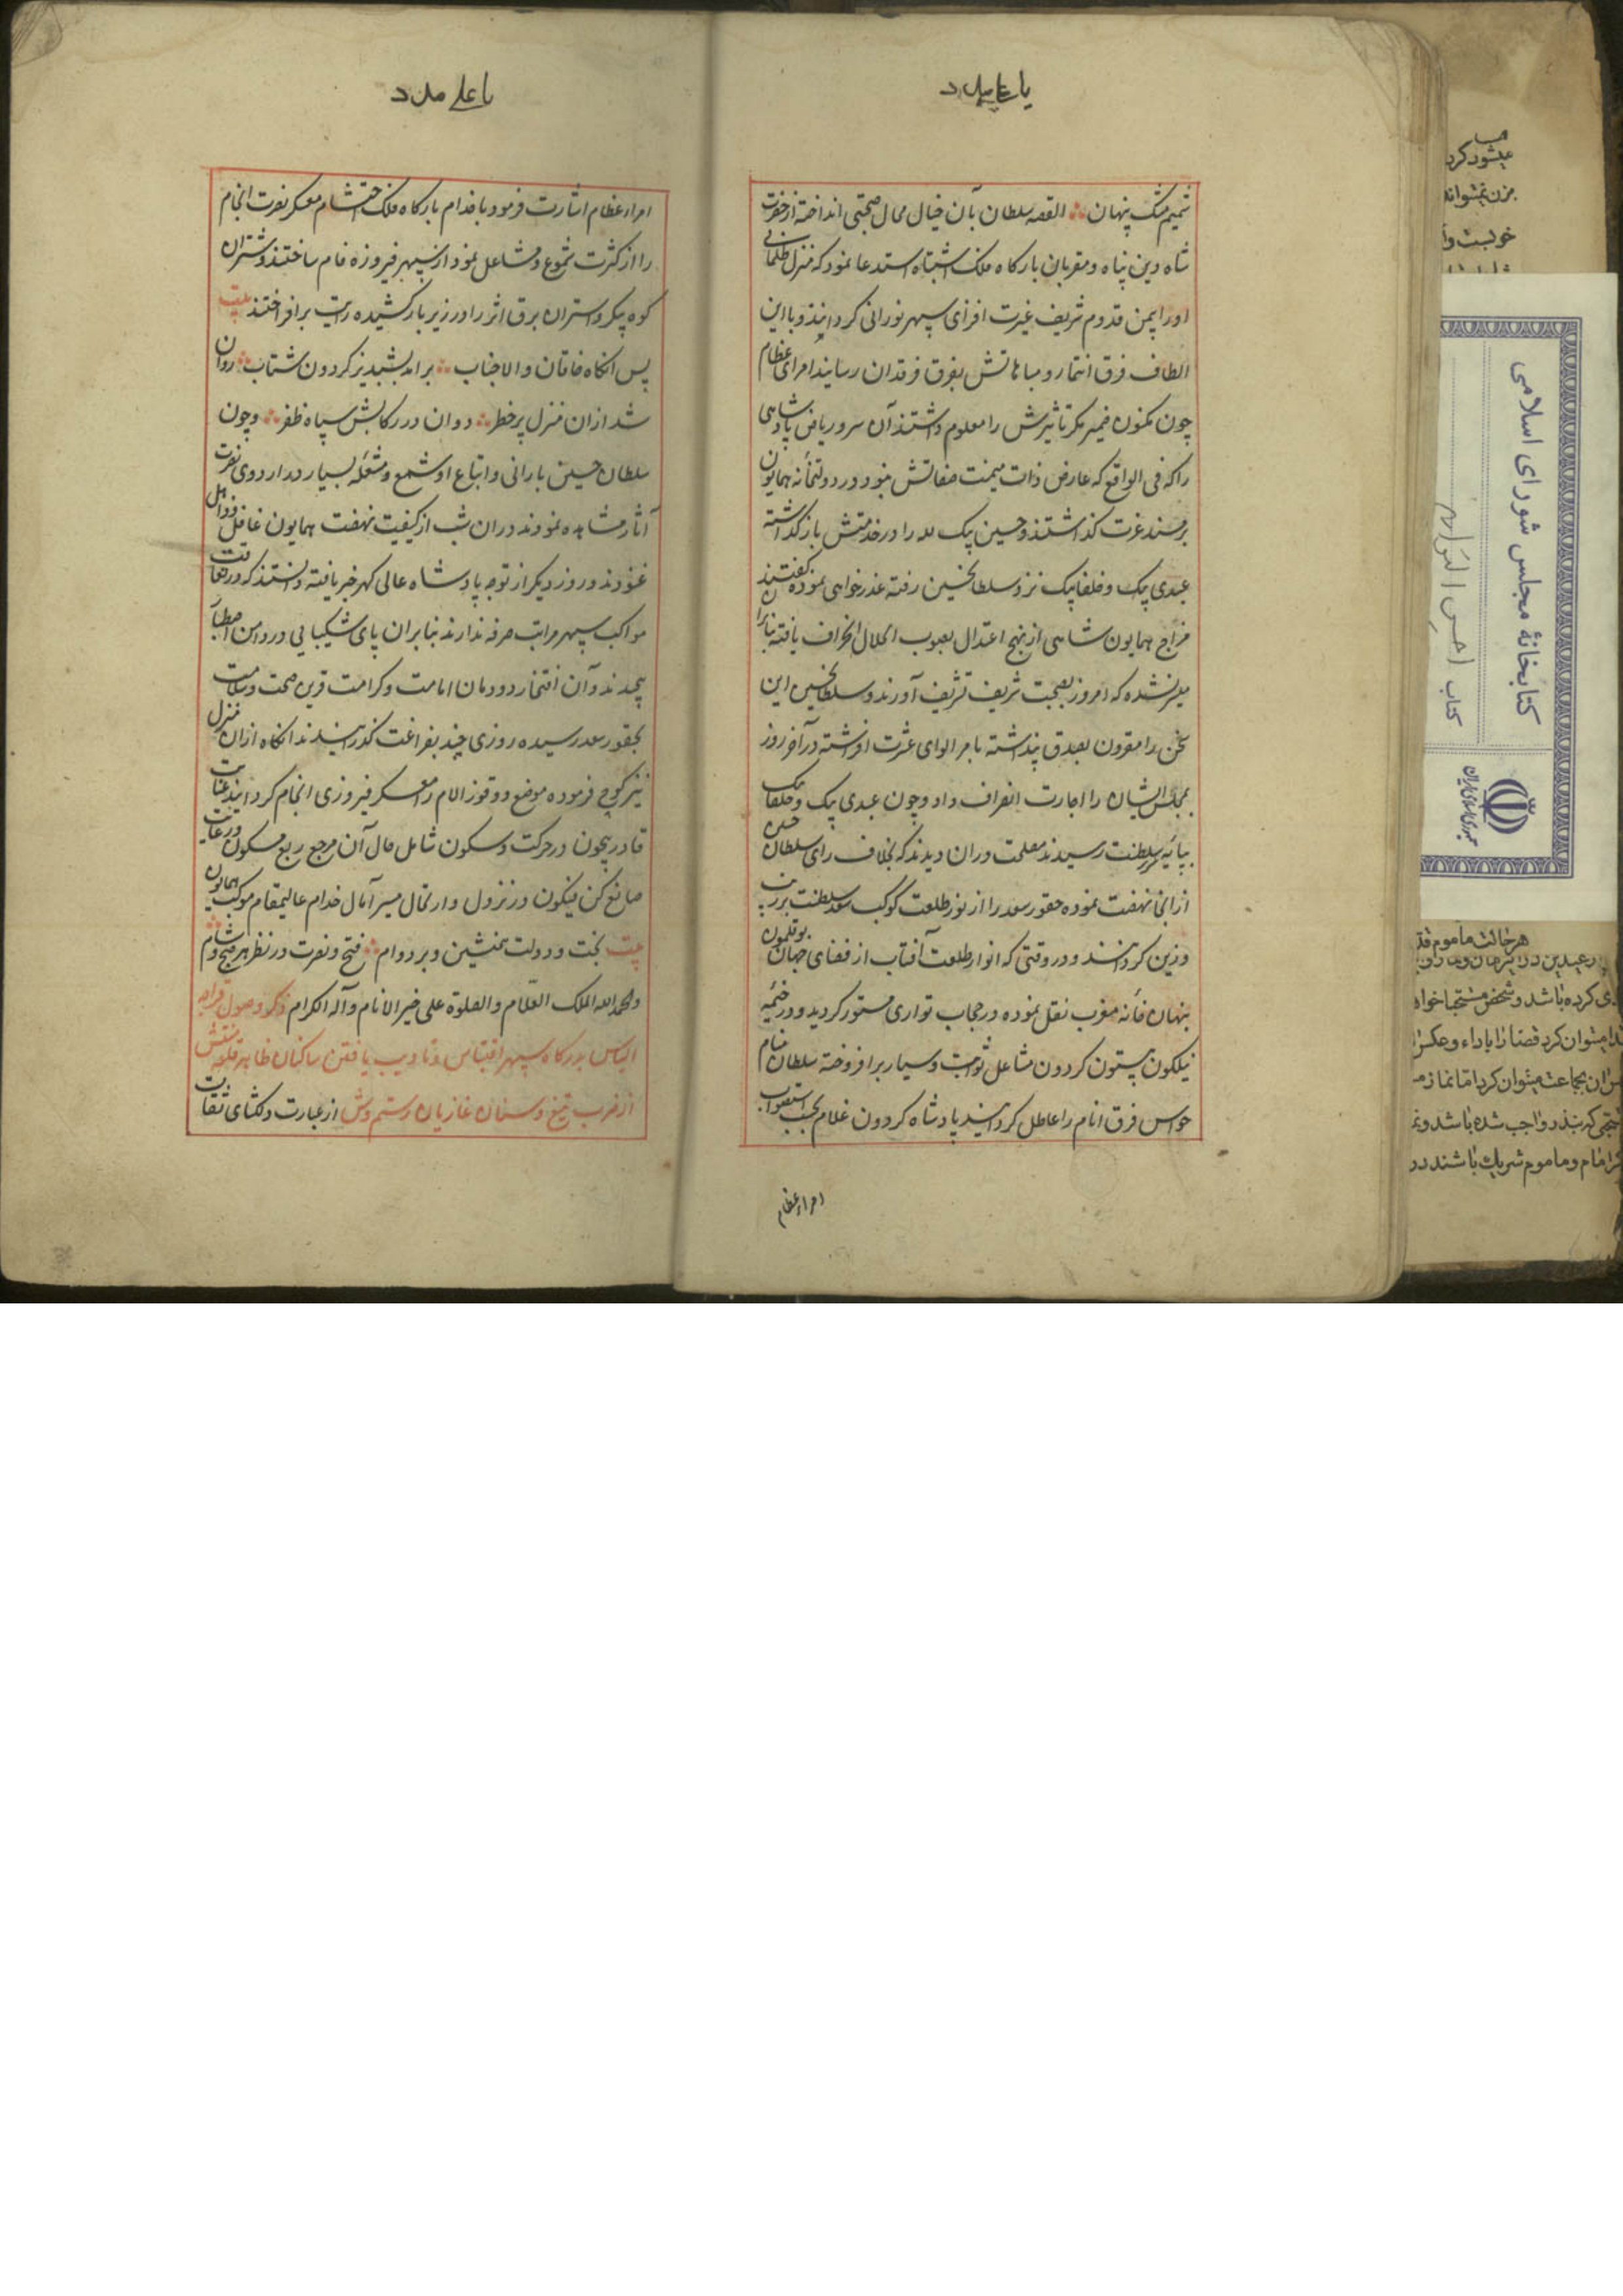 یا علی مدد
شمیم مشک پنهان القصه سلطان بآن خیال محال صحبتی انداخته از حضرت
شاه دین پناه و مقربان بارگاه فلک اشتباه استدعا نمود که منزل ظلمانی
او را بیمن قدوم شریف غیرت افزای سپهر نورانی گردانند و باین
الطاف فرق افتخار و مباهاتش بفوق فرقدان رسانند امرای عظام
چون مکنون ضمیر مکر تاثیرش را معلوم داشتند آن سرو ریاض پادشاهی
را که فی الواقع که عارض ذات میمنت صفاتش نبود در دولتخانه همایون
بر مسند عزت گذاشتند و حسین بیک لله را در خدمتش باز گذاشته
عبدی بیک و خلفا بیک نزد سلطانحسین رفته عذرخواهی نموده گفتند
مزاج همایون شاهی از نهج اعتدال بصوب اختلال انحراف یافته بنابران
میسر نشده که امروز بصحبت شریف تشریف آورند و سلطانحسین این
سخن را مقرون بصدق پنداشته بامرا لوای عشرت افراشته در آخر روز
بمجلس ایشان را اجازت انصراف داد و چون عبدی بیک و خلفا بیک
بپایه سریر سلطنت رسیدند مصلحت دران دیدند که بخلاف رای سلطان حسین
از انجا نهضت نموده حقور سعد را از نور طلعت کوکب سعد سلطنت برزیب
وزین گردانند و در وقتی که انوار طلعت آفتاب از فضای جهان بوقلمون
بنهان خانه مغرب نقل نموده در حجاب تواری مستور گردید و در خیمه
نیلگون بیستون گردون مشاعل ثوابت و سیار برافروخته سلطان منام
حواس فرق انام را عاطل گردانید پادشاه گردون غلام بحسب استصواب
امراء عظام
یا علی مدد
امراء عظام اشارت فرمود با خدام بارگاه فلک احتشام معسکر نصرت انجام
را از کثرت شموع و مشاعل نمودار سپهر فیروزه فام ساختند و شتران
کوه پیکر و استران برق اثر را در زیر بار کشیده رایت برافراختند بیت
پس انگاه خاقان والا جناب برامد بشبدیز گردون شتاب روان
شد ازان منزل پر خطر دوان در رکابش سپاه ظفر و چون
سلطان حسین بارانی و اتباع او شمع و مشعله بسیار در اردوی نصرت
آثار مشاهده نمودند دران شب از کیفیت نهضت همایون غافل و ذاهل
غنودند و روز دیگر از توجه پادشاه عالی گهر خبر یافته دانستند که در تعاقب
مواکب سپهر مراتب صرفه ندارند بنابران پای شکیبائی در دامن اصطبار
پیچیدند و آن افتخار دودمان امامت و کرامت قرین صحت و سلامت
بحقور سعد رسیده روزی چند بفراغت گذرانیدند انگاه ازان منزل
نیز کوچ فرموده موضع دوقوز الام را معسکر فیروزی انجام گردانیدند عنایت
قادر بیچون در حرکت و سکون شامل حال آن مرجع ربع مسکون و رعایت
صانع کن فیکون در نزول و ارتحال میسر آمال خدام عالیمقام موکب همایون
بیت بخت و دولت همنشین و بر دوام فتح و نصرت در نظر هر صبح و شام
والحمد لله الملک العلام والصلوة علی خیر الانام و آله الکرام ذکر وصول قراجه
الیاس بدرگاه سپهر اقتباس و تادیب یافتن ساکنان ظاهر قلعه منتش
از ضرب تیغ و سنان غازیان رستم وش از عبارت دلگشای ثقات
کتابخانهٔ مجلس شورای اسلامی
کتاب احسن التواریخ
جمهوری اسلامی ایران
میشود کرد
هر حالت ماموم